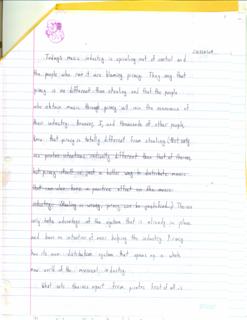 Today's music industry is spiraling out of control and
the people who run it are blaming piracy. They say that
piracy is no different than stealing and that the people
who obtain music through piracy will ruin the economics of
their industry. However, I, and thousands of other people,
know that piracy is totally different from stealing. (Not only
are pirates intentions radically different than that of thieves,
but piracy itself is just a better way to distribute music
that can also have a positive effect on the music
industry. Stealing is wrong, piracy can be justified.) Thieves
only take advantage of the system that is already in place
and have no intention of ever helping the industry. Piracy
has its own distribution system that opens up a whole
new world of the musical industry.
What sets thieves apart from pirates first of all is